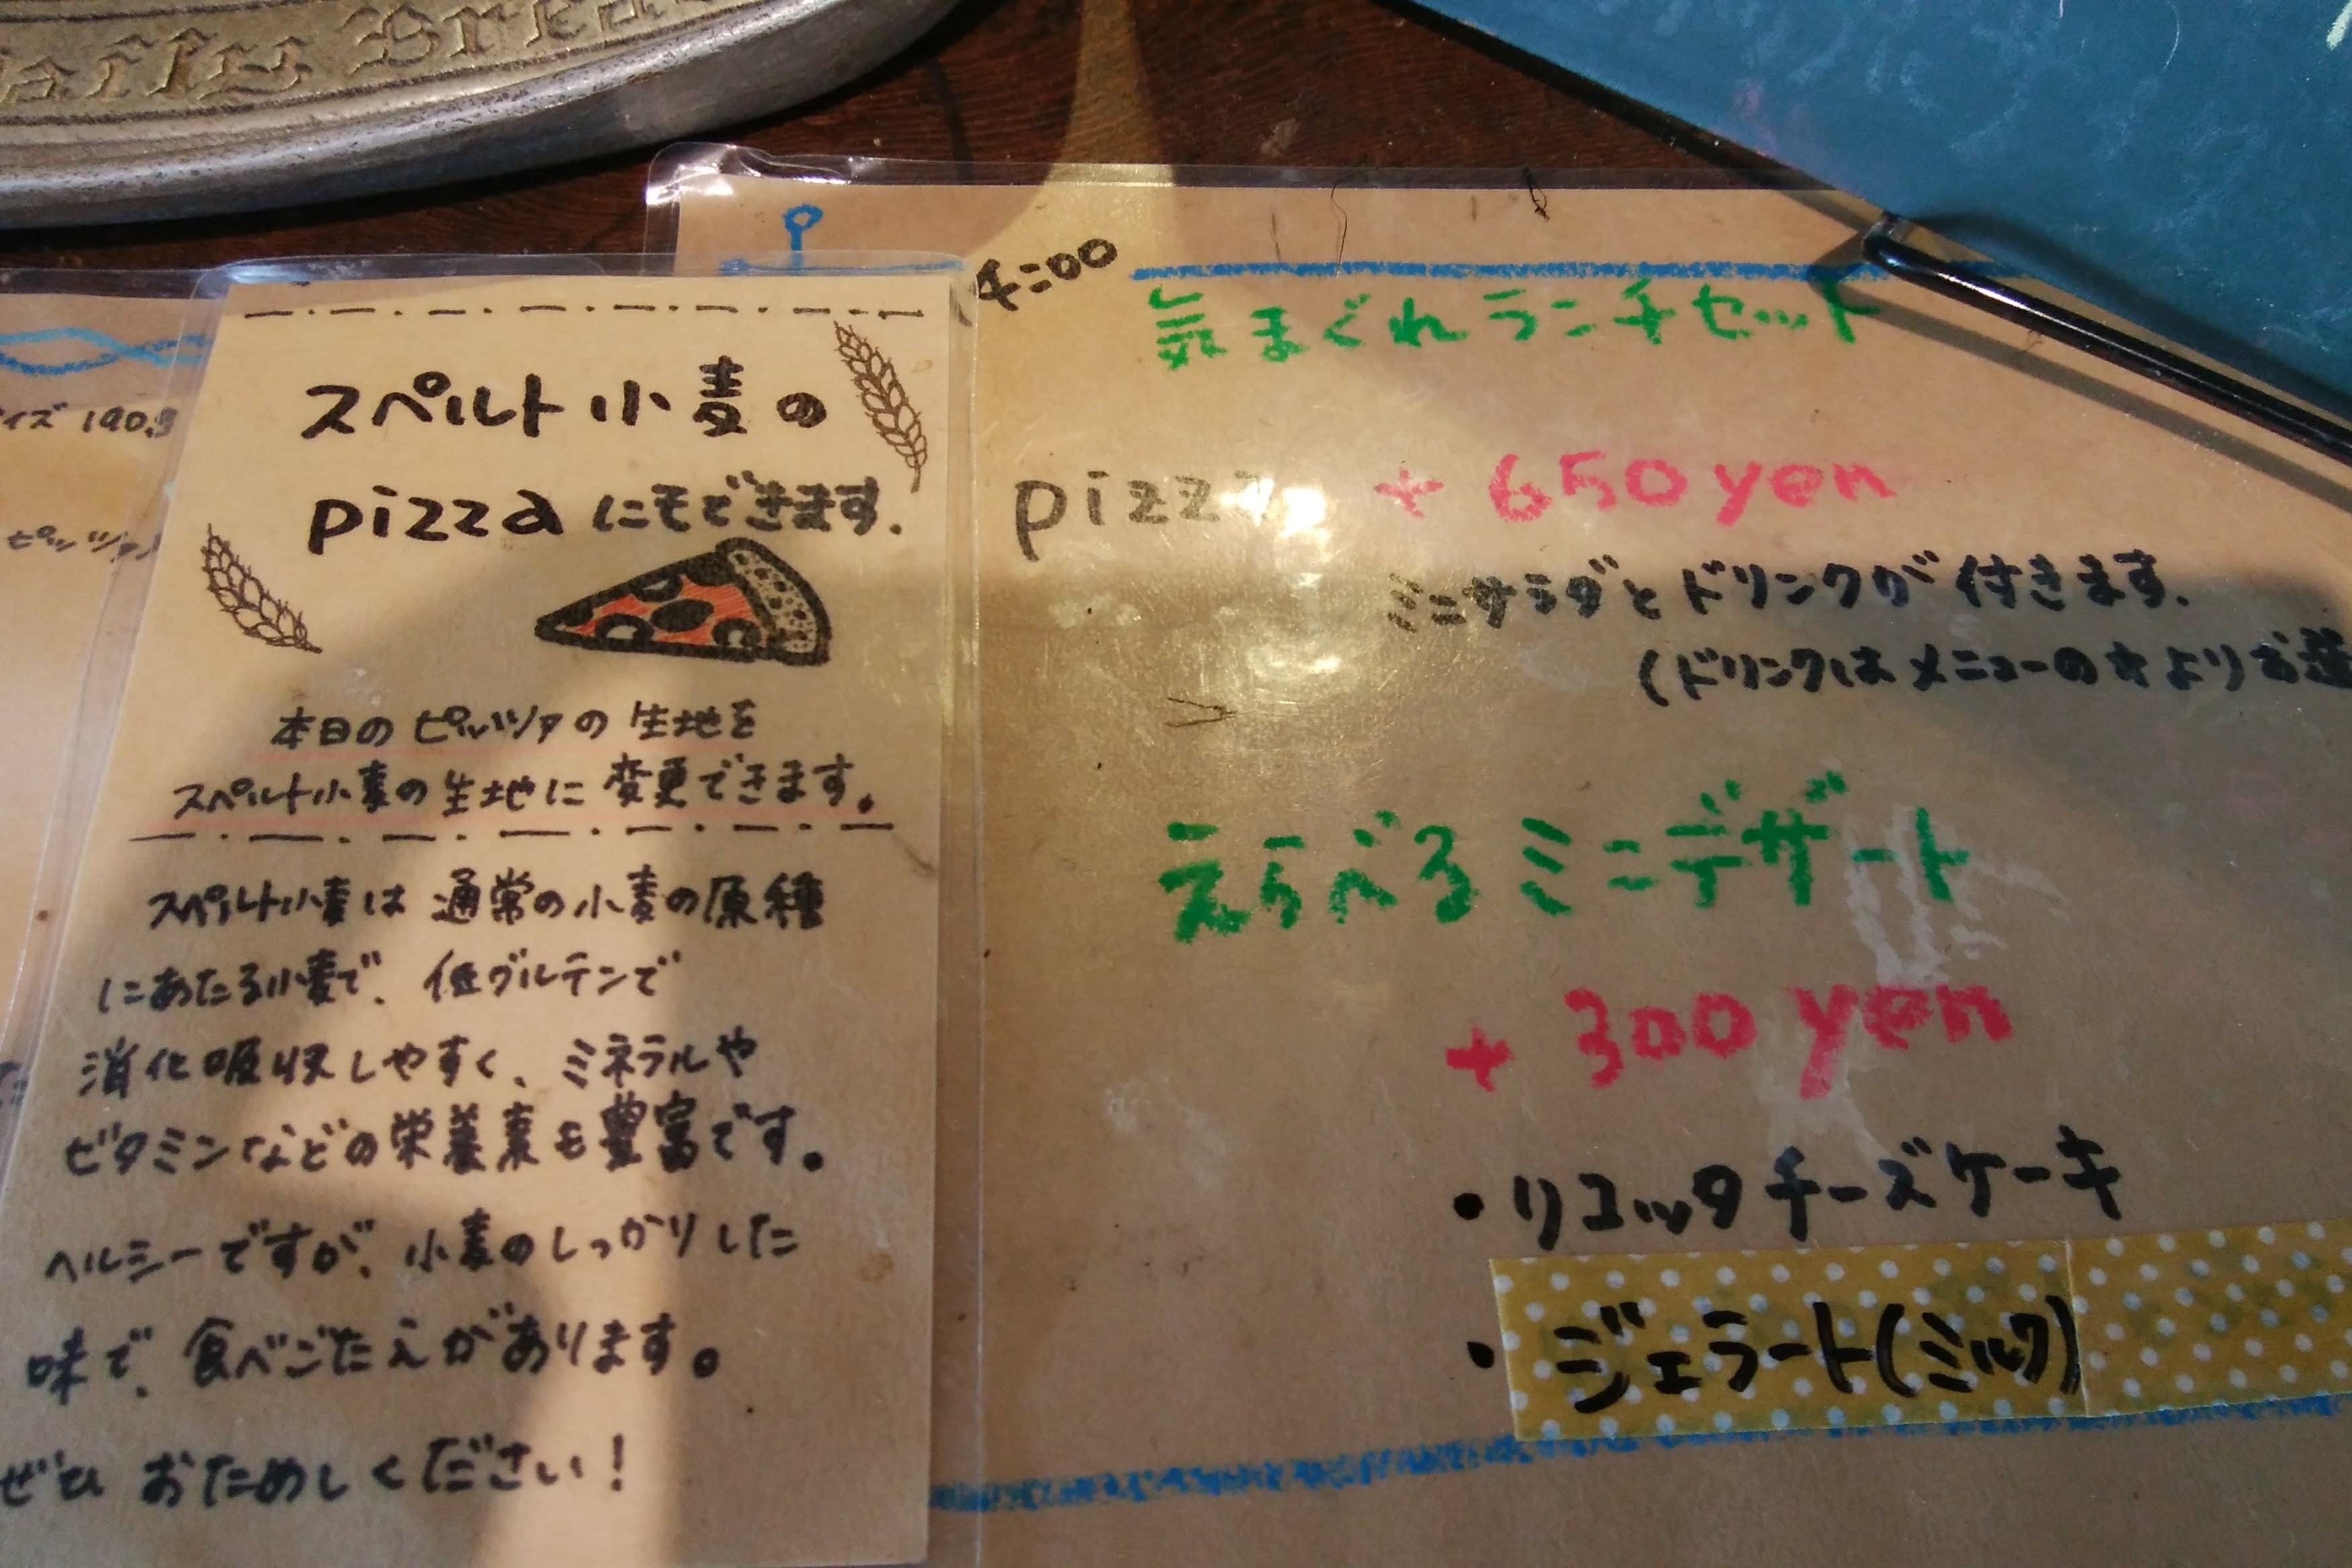 スペルト小麦の
pizzaにもできます.
本日のピッツァの生地を
スペルト小麦の生地に変更できます。
スペルト小麦は通常の小麦の原種
にあたる小麦で、低グルテンで
消化吸収しやすく、ミネラルや
ビタミンなどの栄養素も豊富です。
ヘルシーですが、小麦のしっかりした
味で、食べごたえがあります。
ぜひおためしください!
4:00
気まぐれランチセット
pizza + 650yen
ミニサラダとドリンクが付きます.
(ドリンクはメニューの☆よりお選
えらべるミニデザート
+ 300 yen
・リコッタチーズケーキ
・ジェラート(ミルク)